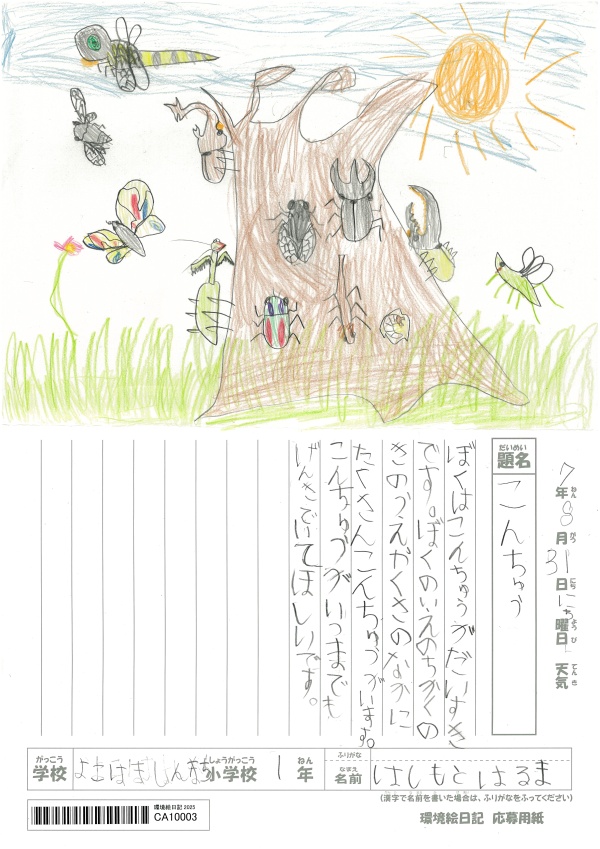 7年8月31日にち曜日 天気
ねん がつ にち ようび てんき
だいめい
題名
こんちゅう
ぼくはこんちゅうがだいすき
です。ぼくのいえのちかくの
きのうえやくさのなかに
たくさんこんちゅうがいます。
こんちゅうがいつまでも
げんきでいてほしいです。
がっこう
学校
しょうがっこう
小学校
1
ねん
年
ふりがな
なまえ
名前
はしもとはるま
(漢字で名前を書いた場合は、ふりがなをふってください)
環境絵日記 2025
CA10003
環境絵日記 応募用紙